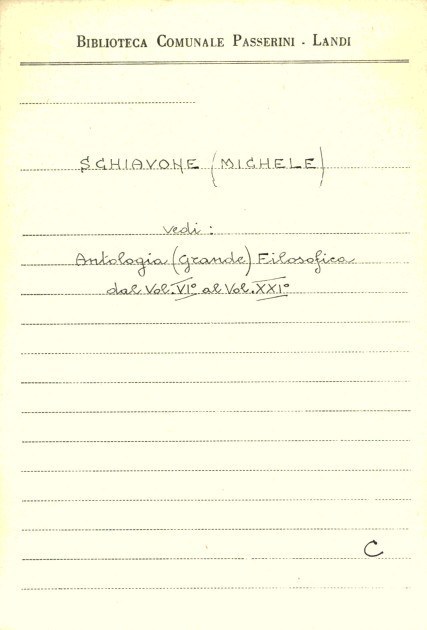 BIBLIOTECA COMUNALE PASSERINI - LANDI
SCHIAVONE (MICHELE)
vedi:
Antologia (Grande) Filosofica
dal Vol. VI° al Vol. XXI°
C